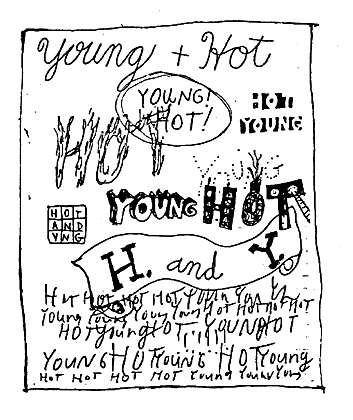 Young + Hot
YOUNG!
HOT!
HOT
YOUNG
HOT
YOUNG
YOUNG HOT
HOT
AND
YNG
H. and Y.
Hot Hot Hot Hot Young
Young Young Young Young Hot Hot Hot Hot
HOT Young HOT YOUNG HOT
YOUNG HOT Young HOT Young
HOT HOT HOT HOT Young Young Young